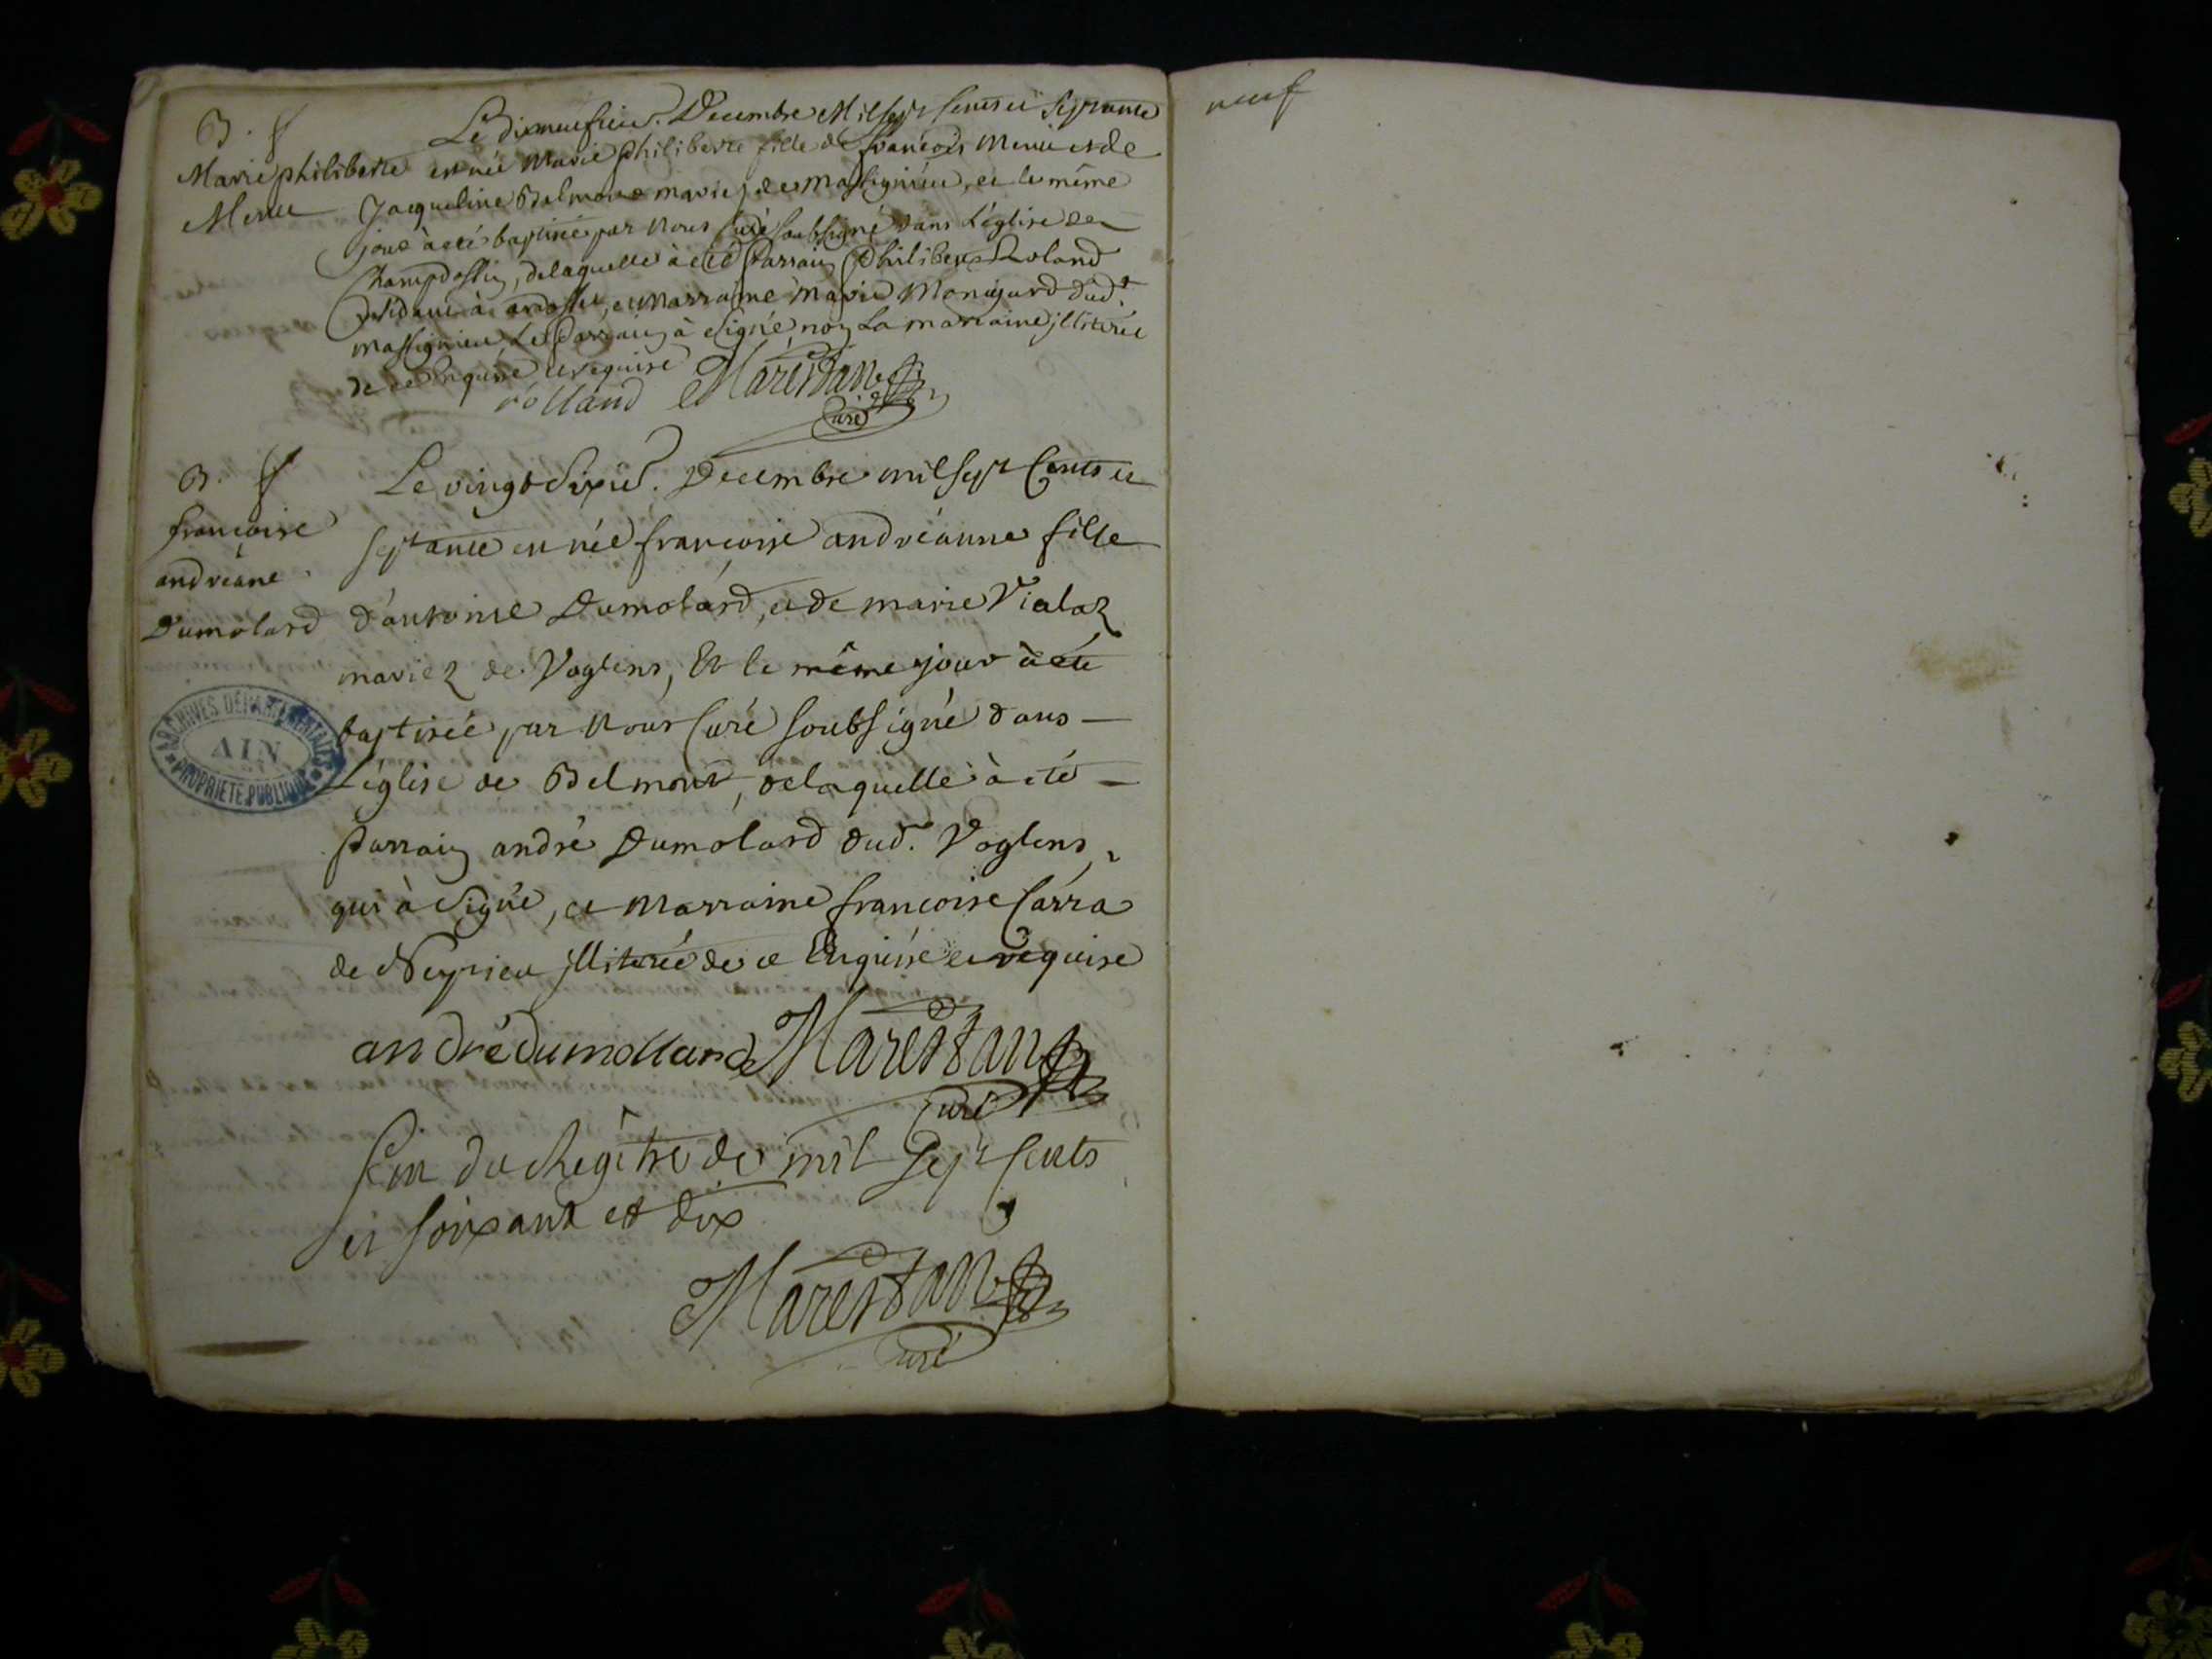 B. f
Marie philiberte
Menu
Le dixneufieu. Decembre Mil sept Cents et Septante
est née Marie philiberte fille de françois Menu et de
Jacqueline Belmont mariez de Massignieu, et le même
jour à eté baptisée par Nous Curé soubsigné dans L'église de
Champdossin, de laquelle à eté Parrain Philibert Roland
Residant à, et Marraine Marie Monigard dud.t
Massignieu, Le Parrain à Signé non La marraine jlliterée
de ce Enquise et requise
rolland Marestan
Curé
B. f
françoise
andréane
Dumolard
Le vingt Sixie. Decembre mil sept Cents et
septante est née françoise andréanne fille
d'antoine Dumolard, et de marie Vialaz
mariez de Voglens, Et le même jour à eté
baptisée par Nous Curé soubsigné dans
L'église de Belmont, de laquelle à eté
Parrain andré Dumolard dud. Voglens,
qui à Signé, et Marraine françoise Carra
de Neyrieu jlliterée de ce Enquise et requise
andré dumollard Marestan
Curé
fin du Regître de mil Sept Cents
et soixant et dix
Marestan
Curé
ARCHIVES DÉPARTEMENTALES
AIN
PROPRIÉTÉ PUBLIQUE
neuf